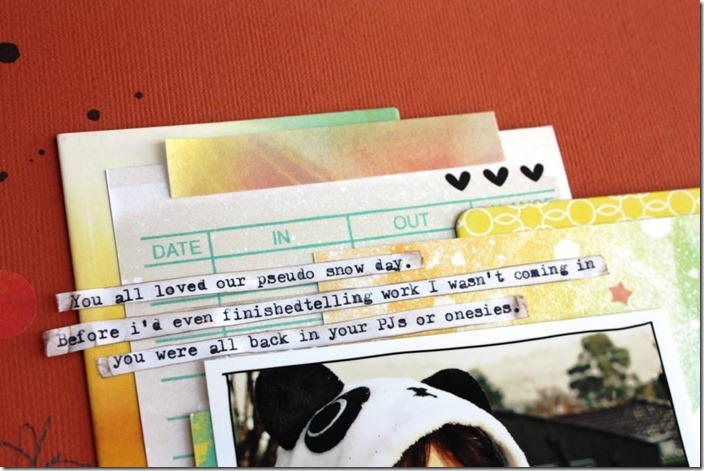 DATE IN OUT BALANCE
You all loved our pseudo snow day.
Before i'd even finishedtelling work I wasn't coming in
you were all back in your PJs or onesies.